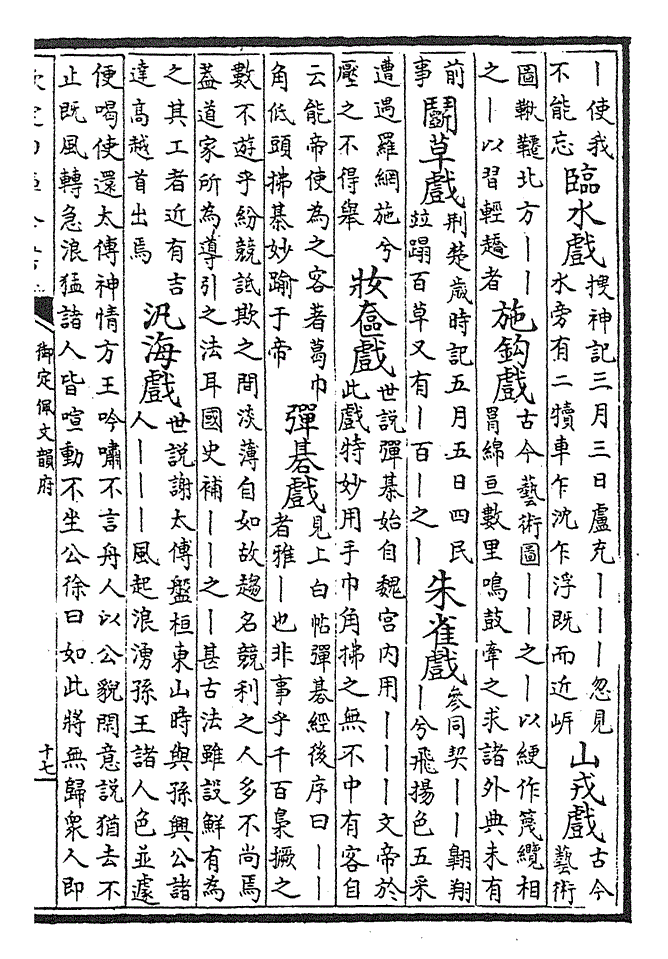 ｜使我
不能忘
臨水戲
搜神記三月三日盧充｜｜｜忽見
水旁有二犢車乍沈乍浮既而近岍
山戎戲
古今
藝術
圖鞦韆北方｜｜
之｜以習輕趫者
施鈎戲
古今藝術圖｜｜之｜以綆作篾纜相
罥綿亘數里鳴鼓牽之求諸外典未有
前
事
鬭草戲
荆楚歲時記五月五日四民
竝蹋百草又有｜百｜之｜
朱雀戲
叅同契｜｜翺翔
｜兮飛揚色五采
遭遇羅網施兮
壓之不得舉
妝奩戲
世説彈棊始自魏宫内用｜｜｜文帝於
此戲特妙用手巾角拂之無不中有客自
云能帝使為之客著葛巾
角低頭拂棊妙踰于帝
彈棊戲
見上白帖彈棊經後序曰｜｜
者雅｜也非事乎千百梟撅之
數不遊乎紛競詆欺之間淡薄自如故趨名競利之人多不尚焉
葢道家所為導引之法耳國史補｜｜之｜甚古法雖設鮮有為
之其工者近有吉
達高越首出焉
汎海戲
世説謝太傅盤桓東山時與孫興公諸
人｜｜｜風起浪湧孫王諸人色並遽
便喝使還太傅神情方王吟嘯不言舟人以公貌閑意説猶去不
止既風轉急浪猛諸人皆喧動不坐公徐曰如此將無歸衆人即
御定佩文韻府
十七